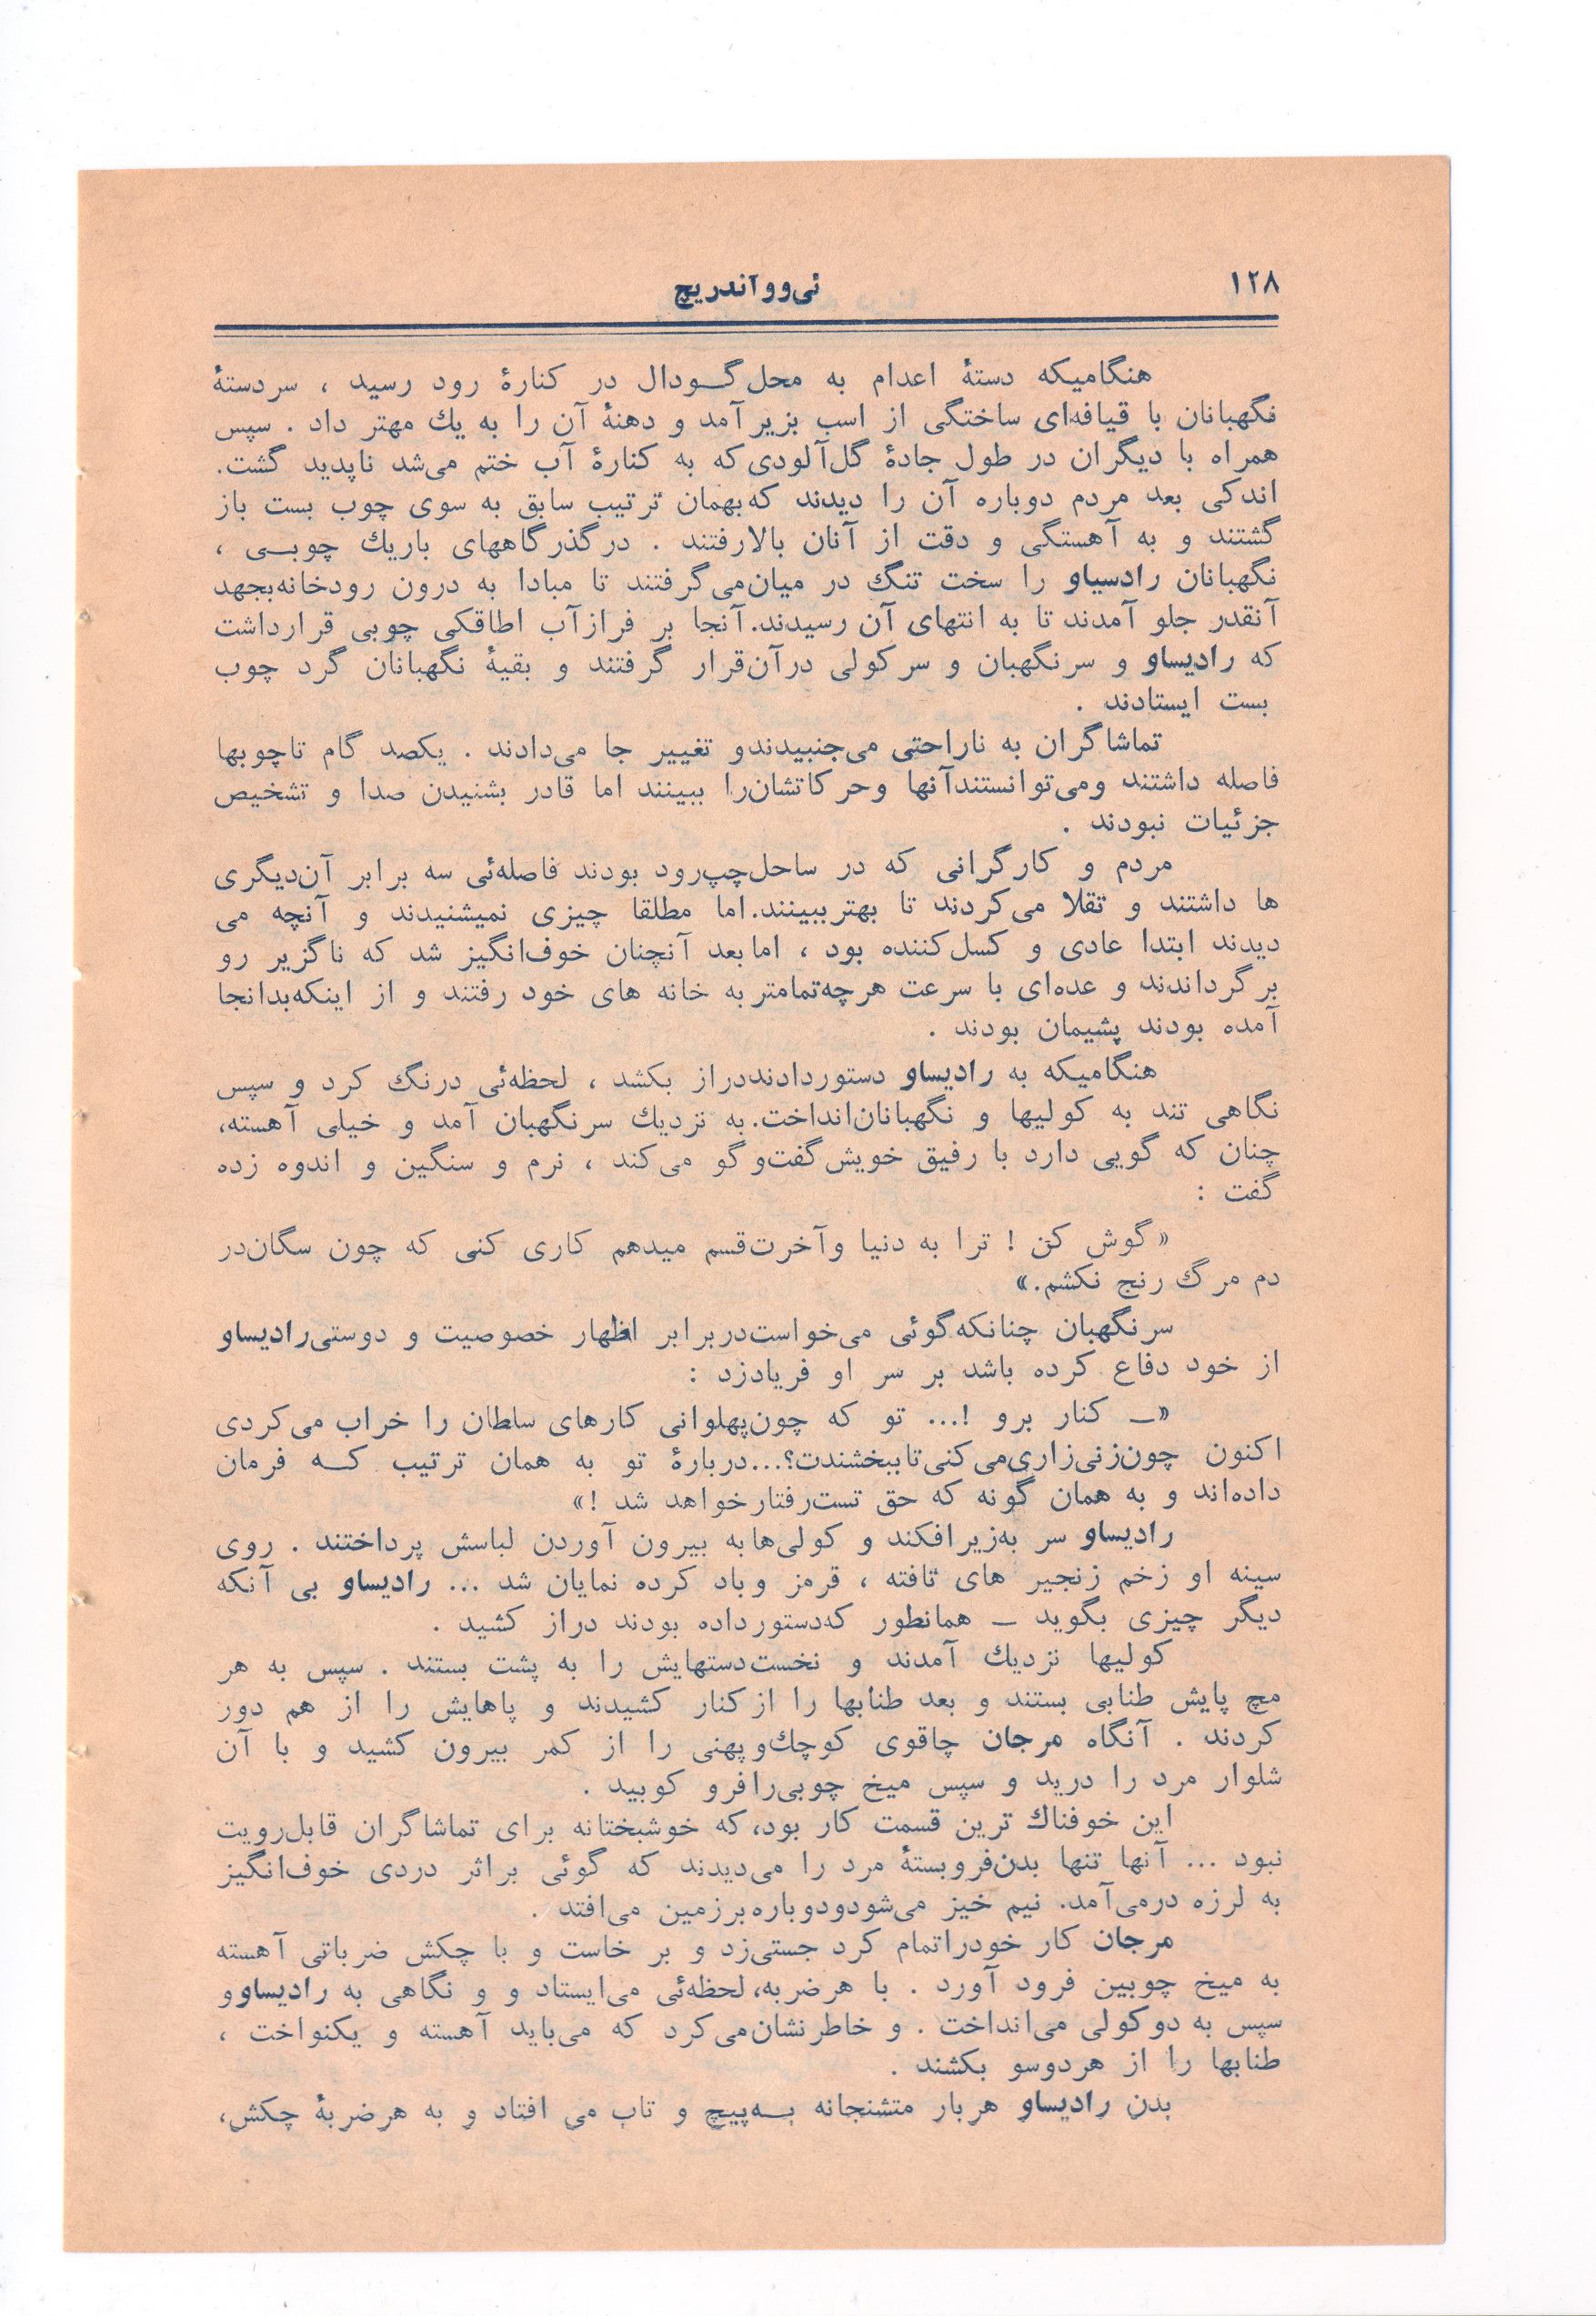 ۱۲۸
ئی‌وو آندریچ
هنگامیکه دستهٔ اعدام به محل گـــودال در کنارهٔ رود رسید ، سردستهٔ
نگهبانان با قیافه‌ای ساختگی از اسب بزیر آمد و دهنهٔ آن را به یك مهتر داد . سپس
همراه با دیگران در طول جادهٔ گل‌آلودی که به کنارهٔ آب ختم می‌شد ناپدید گشت.
اندکی بعد مردم دوباره آن را دیدند که بهمان ترتیب سابق به سوی چوب بست باز
گشتند و به آهستگی و دقت از آنان بالارفتند . در گذرگاههای باریك چوبــی ،
نگهبانان رادسیاو را سخت تنگ در میان می‌گرفتند تا مبادا به درون رودخانه بجهد
آنقدر جلو آمدند تا به انتهای آن رسیدند. آنجا بر فراز آب اطاقکی چوبی قرارداشت
که رادیساو و سرنگهبان و سرکولی در آن قرار گرفتند و بقیهٔ نگهبانان گرد چوب
بست ایستادند .
تماشاگران به ناراحتی می‌جنبیدند و تغییر جا می‌دادند . یکصد گام تاچوبها
فاصله داشتند ومی‌توانستند آنها وحرکاتشان را ببینند اما قادر بشنیدن صدا و تشخیص
جزئیات نبودند .
مردم و کارگرانی که در ساحل چپ رود بودند فاصله‌ئی سه برابر آن دیگری
ها داشتند و تقلا می‌کردند تا بهتر ببینند. اما مطلقا چیزی نمیشنیدند و آنچه می
دیدند ابتدا عادی و کسل کننده بود ، اما بعد آنچنان خوف‌انگیز شد که ناگزیر رو
برگرداندند و عده‌ای با سرعت هرچه‌تمامتر به خانه های خود رفتند و از اینکه بدانجا
آمده بودند پشیمان بودند .
هنگامیکه به رادیساو دستور دادند دراز بکشد ، لحظه‌ئی درنگ کرد و سپس
نگاهی تند به کولیها و نگهبانان انداخت. به نزدیك سرنگهبان آمد و خیلی آهسته،
چنان که گویی دارد با رفیق خویش گفت‌و گو می‌کند ، نرم و سنگین و اندوه زده
گفت :
«گوش کن ! ترا به دنیا و آخرت قسم میدهم کاری کنی که چون سگان در
دم مرگ رنج نکشم.»
سرنگهبان چنانکه گوئی می‌خواست در برابر اظهار خصوصیت و دوستی رادیساو
از خود دفاع کرده باشد بر سر او فریاد زد :
«ــ کنار برو !... تو که چون پهلوانی کارهای سلطان را خراب می‌کردی
اکنون چون زنی زاری می‌کنی تا ببخشندت؟... دربارهٔ تو به همان ترتیب کـــه فرمان
داده‌اند و به همان گونه که حق تست رفتار خواهد شد !»
رادیساو سر به‌زیر افکند و کولی‌ها به بیرون آوردن لباسش پرداختند . روی
سینه او زخم زنجیر های تافته ، قرمز و باد کرده نمایان شد ... رادیساو بی آنکه
دیگر چیزی بگوید ــ همانطور که دستور داده بودند دراز کشید .
کولیها نزدیك آمدند و نخست دستهایش را به پشت بستند . سپس به هر
مچ پایش طنابی بستند و بعد طنابها را از کنار کشیدند و پاهایش را از هم دور
کردند . آنگاه مرجان چاقوی کوچك و پهنی را از کمر بیرون کشید و با آن
شلوار مرد را درید و سپس میخ چوبی را فرو کوبید .
این خوفناك ترین قسمت کار بود، که خوشبختانه برای تماشاگران قابل رویت
نبود ... آنها تنها بدن فروبستهٔ مرد را می‌دیدند که گوئی براثر دردی خوف‌انگیز
به لرزه درمی‌آمد. نیم خیز می‌شود و دوباره برزمین می‌افتد .
مرجان کار خودرا تمام کرد جستی زد و بر خاست و با چکش ضرباتی آهسته
به میخ چوبین فرود آورد . با هر ضربه، لحظه‌ئی می‌ایستاد و و نگاهی به رادیساوو
سپس به دو کولی می‌انداخت . و خاطر نشان می‌کرد که می‌باید آهسته و یکنواخت ،
طنابها را از هردوسو بکشند .
بدن رادیساو هربار متشنجانه بــه‌پیچ و تاب می افتاد و به هرضربهٔ چکش،